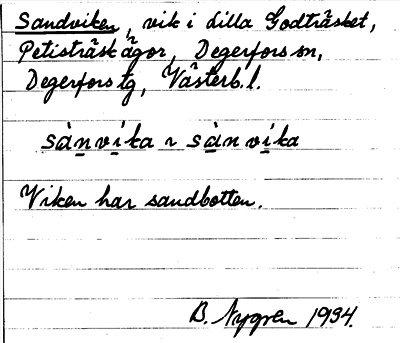 Sandviken, vik i Lilla Godträsket,
Petisträsk ägor, Degerfors sn,
Degerfors tg, Västerb. l.
sànvíka ~ sànvíka
Viken har sandbotten.
B. Nygren 1934.